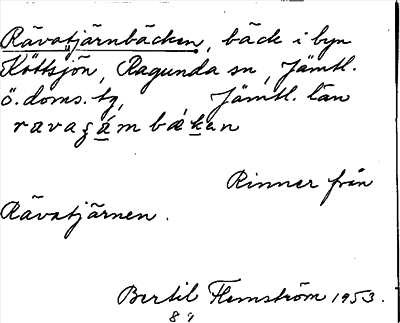 Rävatjärnbäcken, bäck i byn
Köttsjön, Ragunda sn, Jämtl.
ö. doms. tg, Jämtl. län
Rinner från
Rävatjärnen.
Bertil Flemström 1953.